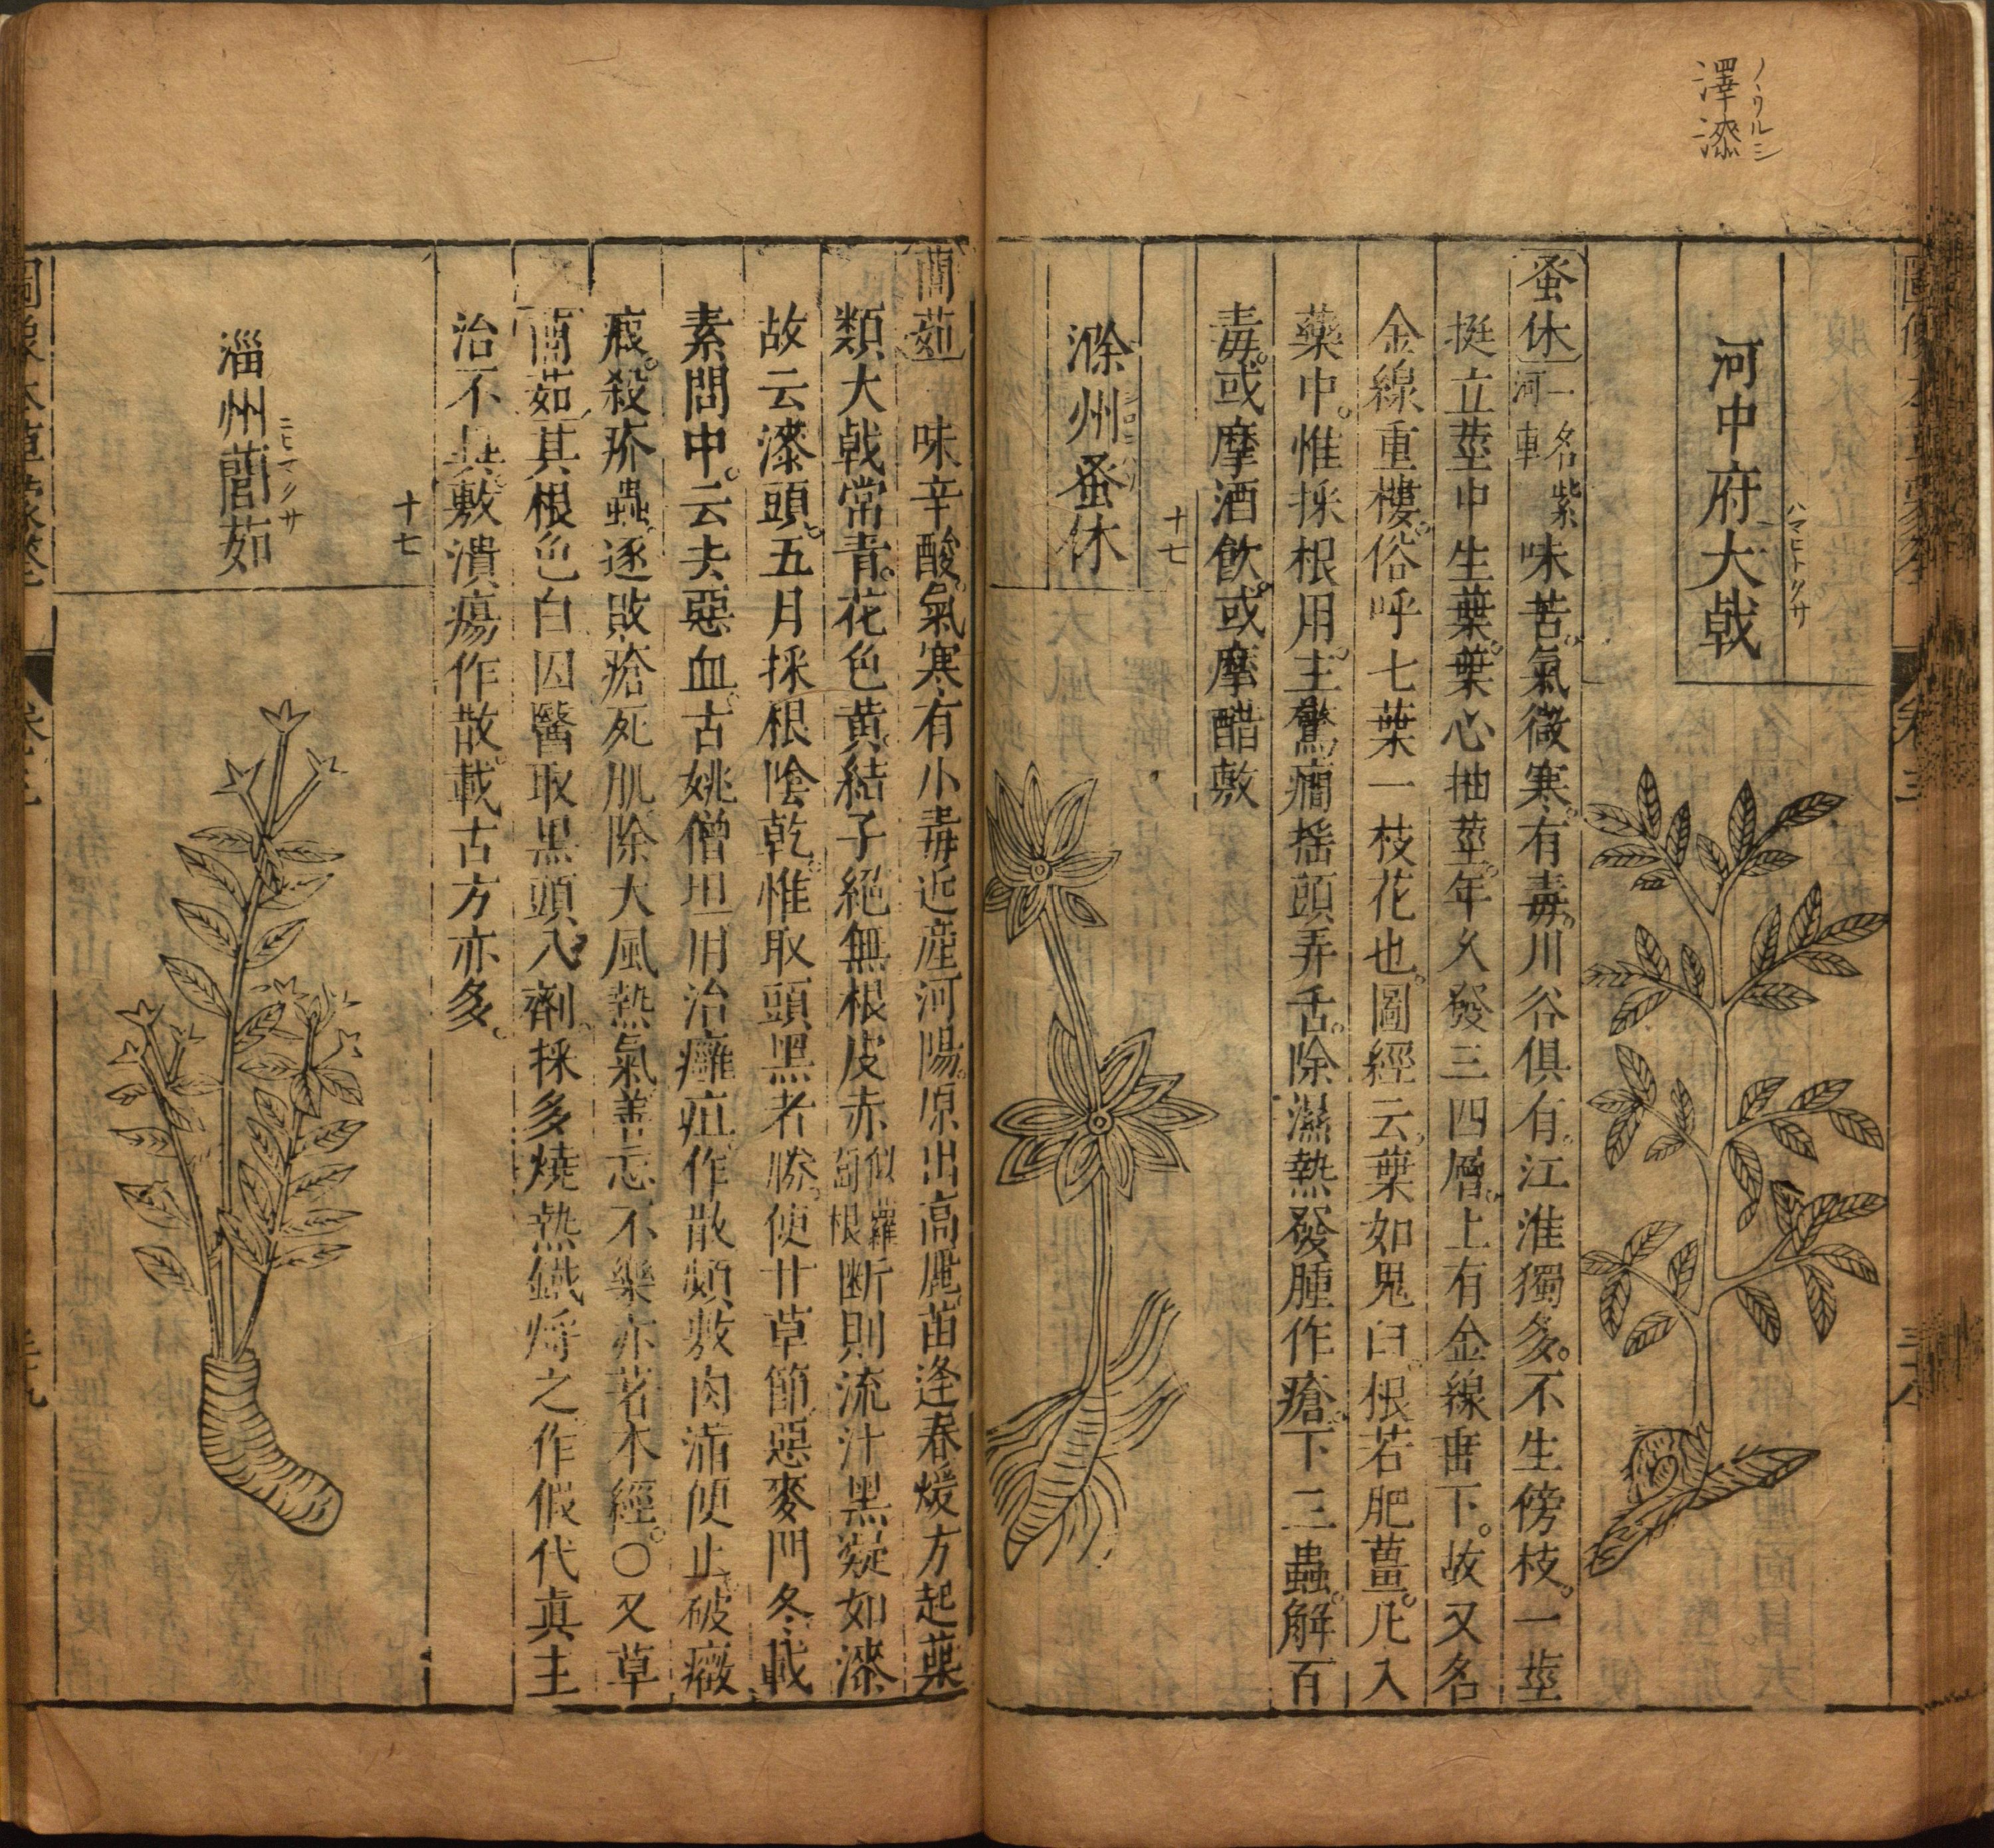 澤漆
ノウルシ
河中府大戟
ハマヒトクサ
蚤休 一名紫河車 味苦。氣微寒。有毒。川谷俱有。江淮獨多。不生傍枝。一莖
挺立。莖中生葉。葉心抽莖。年久發三四層。上有金線垂下。故又名
金線重樓。俗呼七葉一枝花也。圖經云。葉如鬼臼。根若肥薑。凡入
藥中。惟採根用。主驚癎搖頭弄舌。除濕熱發腫作瘡。下三蟲。解百
毒。或摩酒飲。或摩醋敷
十七
滁州蚤休
䕡茹 味辛酸。氣寒。有小毒。近產河陽。原出高麗。苗逢春煖方起。葉
類大戟常青。花色黃。結子絕無。根皮赤 似羅蔔根 斷則流汁黑凝如漆
故云漆頭。五月採根陰乾。惟取頭黑者勝。使甘草節。惡麥門冬。載
素問中。云去惡血。古姚僧坦用治癰疽。作散頻敷。肉滿便止。破癥
瘕。殺疥蟲。逐敗瘡死肌。除大風熱氣。善忘不樂。亦著本經。○又草
䕡茹。其根色白。因醫取黑頭入劑。採多燒熱鐵烙之。作假代真。主
治不共。敷潰瘍作散。載古方亦多。
十七
淄州䕡茹
ニヒマクサ
卷三